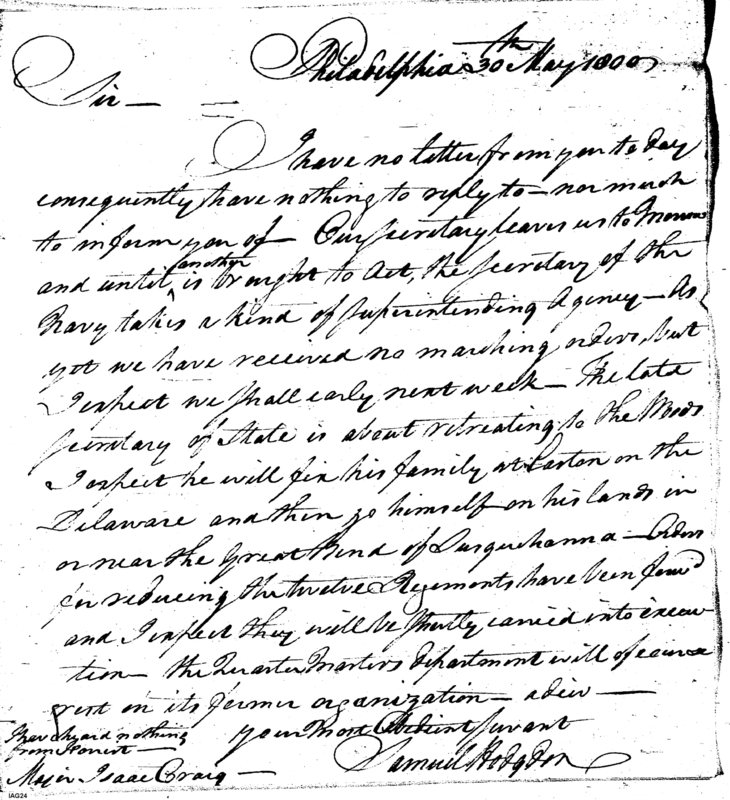 Philadelphia 30th May 1800
Sir —
I have no letter from you to day
consequently have nothing to reply to — nor much
to inform you of — Our Secretary leaves us to Morrow
and until another is brought to Act, the Secretary of the
Navy takes a kind of Superintending Agency — As
yet we have received no marching orders, but
I expect we shall early next week — The late
Secretary of State is about retreating to the Woods
I expect he will fix his family at Easton on the
Delaware and then go himself on his lands in
or near the Great Bend of Susquehanna — Orders
for reducing the twelve Regiments have been
and I expect they will be shortly carried into execu
tion — the Quarter Masters department will of course
rest on its former organization — adieu —
your most Obedient Servant
Samuel Hodgdon
I have heard nothing
from
Major Isaac Craig —
IAG24